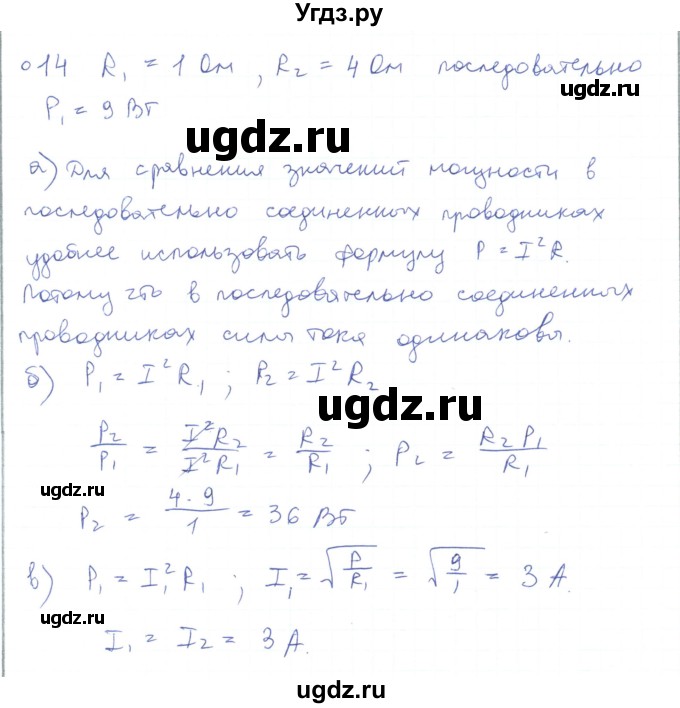 Угдз.ру
014 R₁ = 1 Ом, R₂ = 4 Ом последовательно
ugdz.ru
P₁ = 9 Вт
ugdz.ru
а) Для сравнения значений мощности в
последовательно соединенных проводниках
удобнее использовать формулу P = I²R.
Потому что в последовательно соединенных
проводниках силы тока одинаковы.
б) P₁ = I²R₁ ; P₂ = I²R₂
ugdz.ru
P₂/P₁ = I²R₂/I²R₁ = R₂/R₁ ; P₂ = R₂P₁/R₁
ugdz.ru
P₂ = 4·9/1 = 36 Вт
ugdz.ru
в) P₁ = I₁²R₁ ; I₁ = √(P/R₁) = √(9/1) = 3 А.
ugdz.ru
I₁ = I₂ = 3 А.
ugdz.ru
ugdz.ru